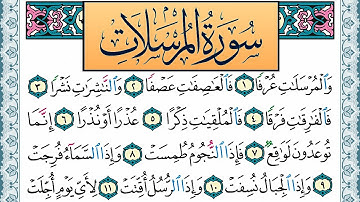 سُورَةُ الْمُرْسَلَاتِ
وَالْمُرْسَلَاتِ عُرْفًا ١ فَالْعَاصِفَاتِ عَصْفًا ٢ وَالنَّاشِرَاتِ نَشْرًا ٣
فَالْفَارِقَاتِ فَرْقًا ٤ فَالْمُلْقِيَاتِ ذِكْرًا ٥ عُذْرًا أَوْ نُذْرًا ٦ إِنَّمَا
تُوعَدُونَ لَوَاقِعٌ ٧ فَإِذَا النُّجُومُ طُمِسَتْ ٨ وَإِذَا السَّمَاءُ فُرِجَتْ
٩ وَإِذَا الْجِبَالُ نُسِفَتْ ١٠ وَإِذَا الرُّسُلُ أُقِّتَتْ ١١ لِأَيِّ يَوْمٍ أُجِّلَتْ